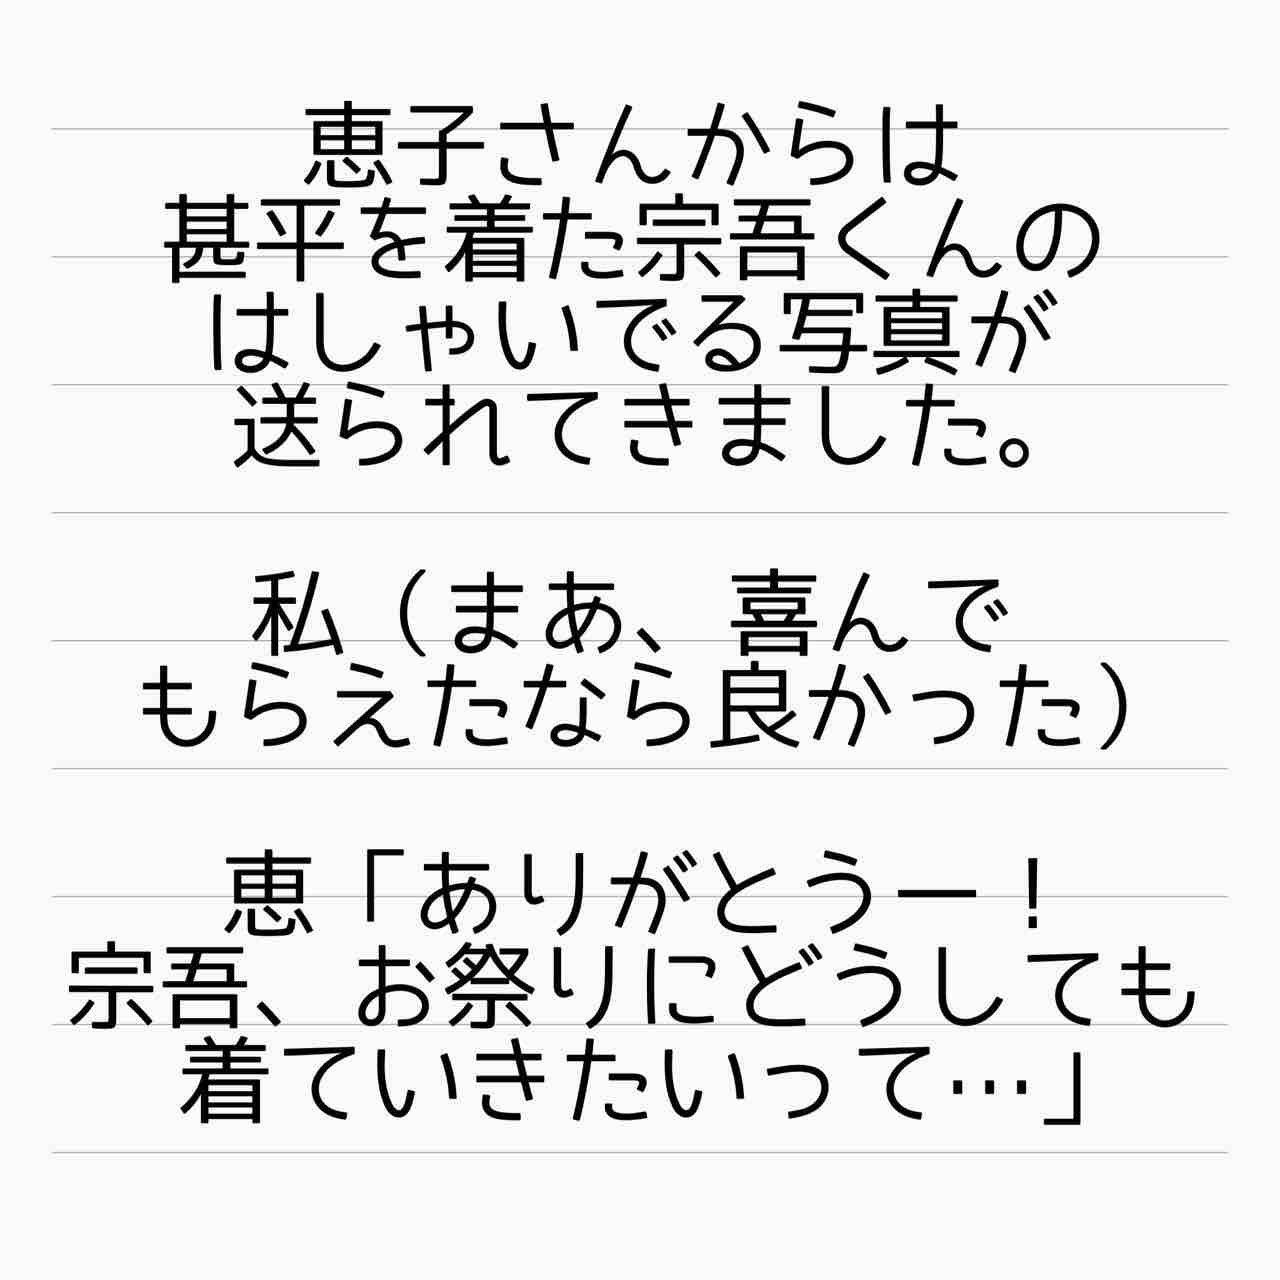 恵子さんからは
甚平を着た宗吾くんの
はしゃいでる写真が
送られてきました。
私（まあ、喜んで
もらえたなら良かった）
恵「ありがとうー！
宗吾、お祭りにどうしても
着ていきたいって…」